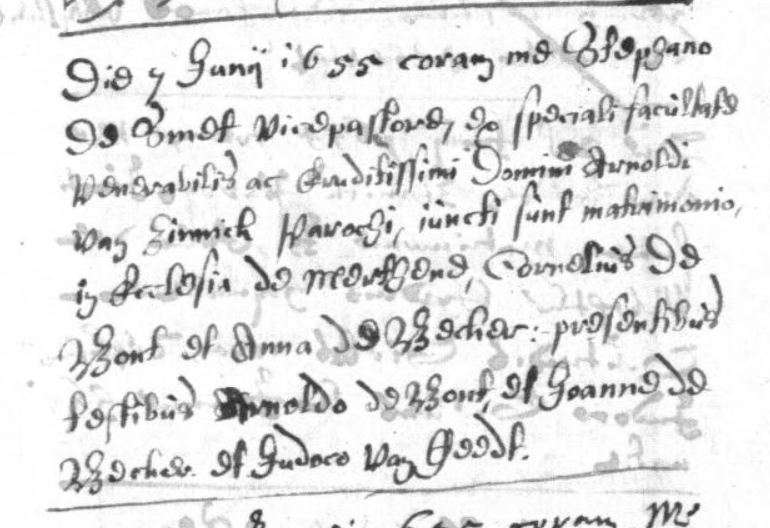 Die 7 Junij i655 coram me Stephano
De Smet vicepastore, ex speciali facultate
Venerabilis ac Eruditissimi Domini Arnoldi
van Zinnick Parochi, iuncti sunt matrimonio,
in Ecclesia de Merchene, Cornelius De
Bont et Anna de Becker: presentibus
testibus Arnoldo de Bont, et Joanne de
Becker et Judoco van
coram Me